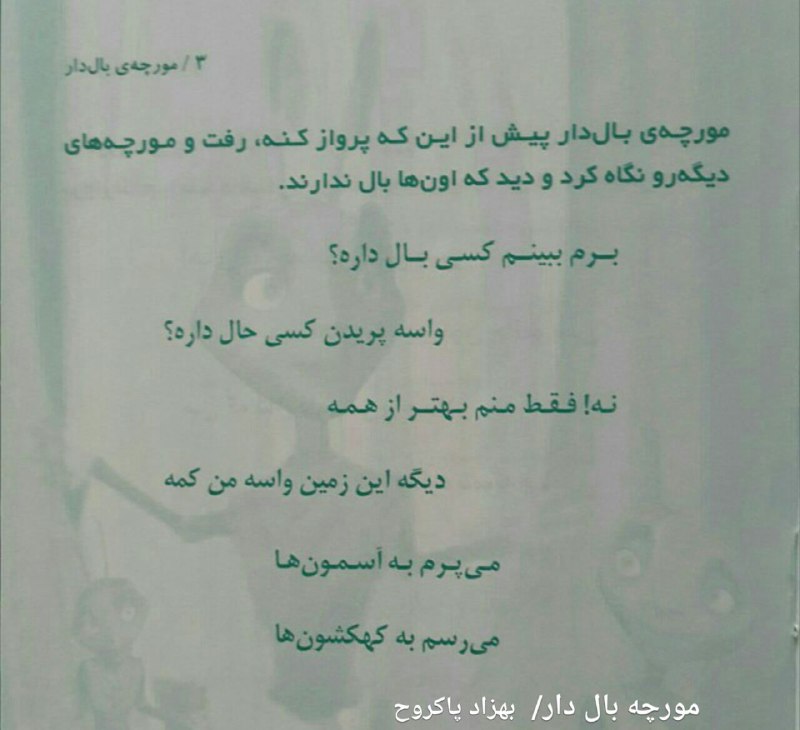 ۳ / مورچه‌ی بال‌دار
مورچه‌ی بال‌دار پیش از این که پرواز کنه، رفت و مورچه‌های
دیگه‌رو نگاه کرد و دید که اون‌ها بال ندارند.
برم ببینم کسی بال داره؟
واسه پریدن کسی حال داره؟
نه! فقط منم بهتر از همه
دیگه این زمین واسه من کمه
می‌پرم به آسمون‌ها
می‌رسم به کهکشون‌ها
مورچه بال دار/ بهزاد پاکروح